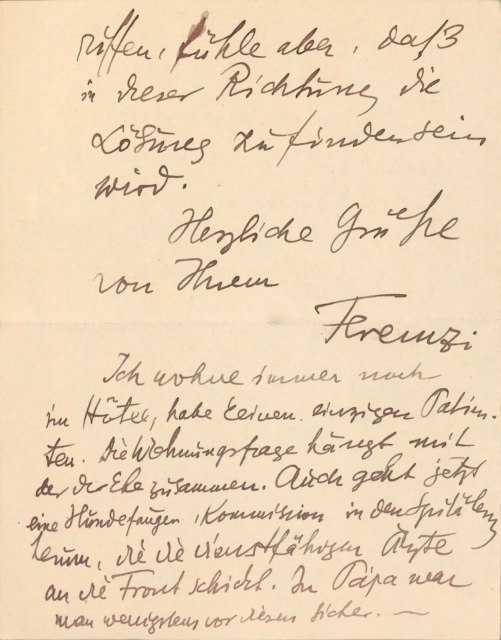 riffen, fühle aber, daß
in dieser Richtung die
Lösung zu finden sein
wird.
Herzliche Grüße
von Ihrem
Ferenczi
Ich wohne immer noch
im Hôtel, habe keinen einzigen Patien-
ten. Die Wohnungsfrage hängt mit
der der Ehe zusammen. Auch geht jetzt
eine Hundefänger Kommission in den Spitälern
herum, die die dienstfähigen Ärzte
an die Front schickt. In Pápa war
man wenigstens vor diesen sicher. —